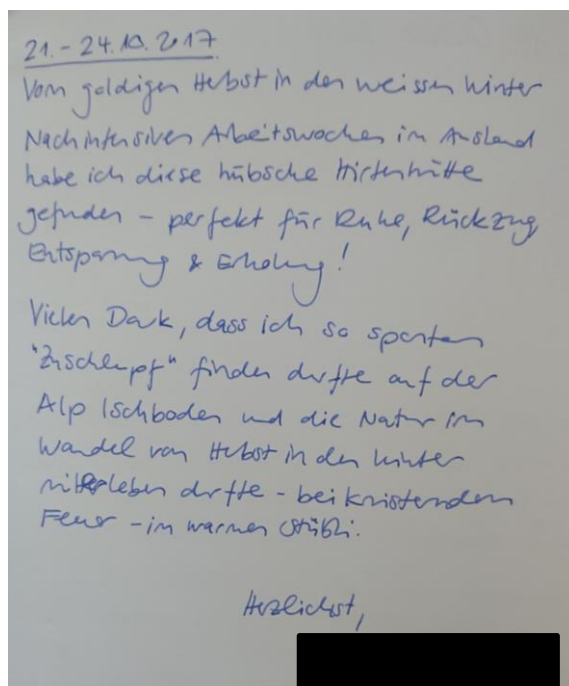 21. - 24.10.2017
Vom goldigen Herbst in den weissen Winter
Nach intensiven Arbeitswochen im Ausland
habe ich diese hübsche Hirtenhütte
gefunden - perfekt für Ruhe, Rückzug
Entspannung & Erholung!
Vielen Dank, dass ich so spontan
"Zuschlupf" finden durfte auf der
Alp Ischboden und die Natur im
Wandel von Herbst in den Winter
miterleben durfte - bei knisterndem
Feuer - im warmen Stübli.
Herzlichst,